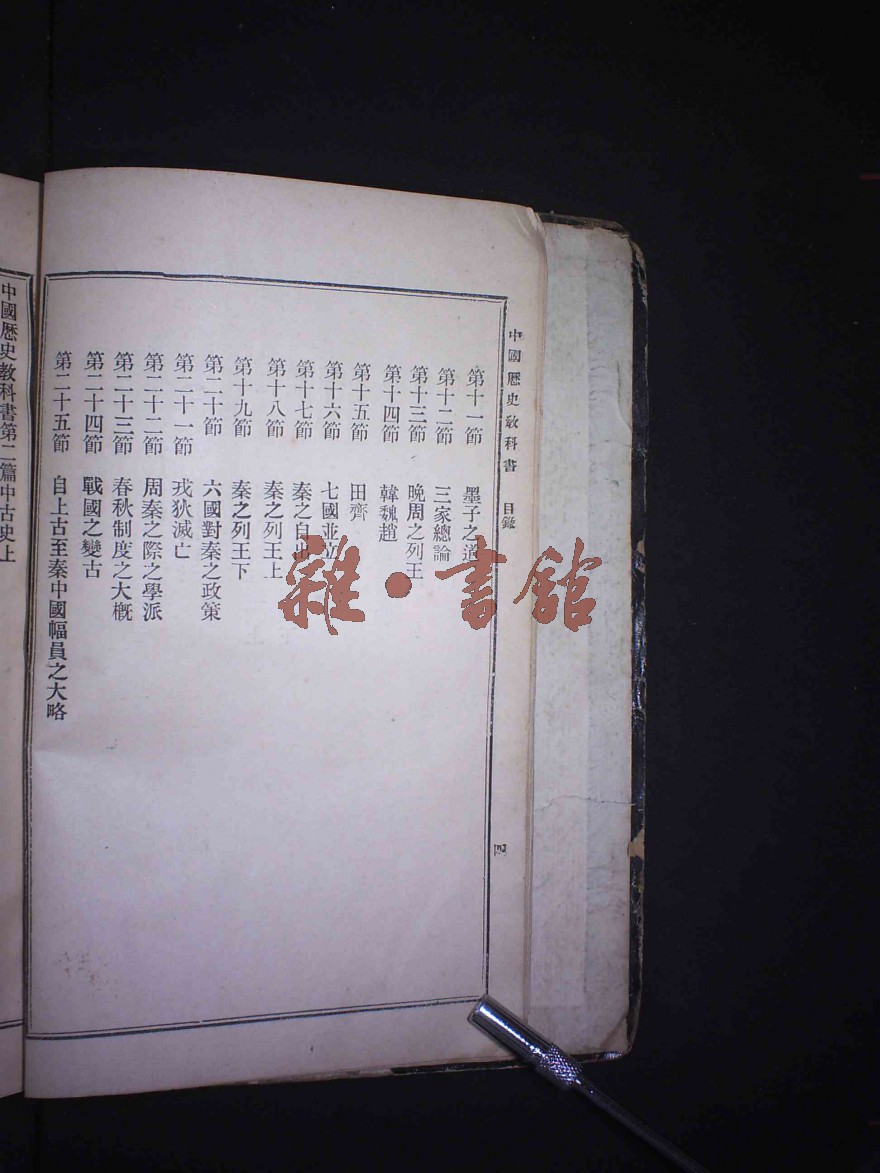 中國歷史敎科書 目錄 四
第十一節 墨子之道
第十二節 三家總論
第十三節 晚周之列王
第十四節 韓魏趙
第十五節 田齊
第十六節 七國並立
第十七節 秦之自出
第十八節 秦之列王上
第十九節 秦之列王下
第二十節 六國對秦之政策
第二十一節 戎狄滅亡
第二十二節 周秦之際之學派
第二十三節 春秋制度之大槪
第二十四節 戰國之變古
第二十五節 自上古至秦中國幅員之大略
中國歷史敎科書第二篇中古史上
雜·書館